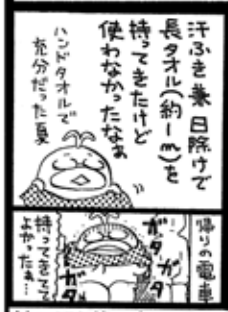 汗ふき兼日除けで
長タオル(約1m)を
持ってきたけど
使わなかったなぁ
ハンドタオルで
充分だった夏
帰りの電車
ガタ
ガタ
ガタ
持ってきてて
よかったぁ…